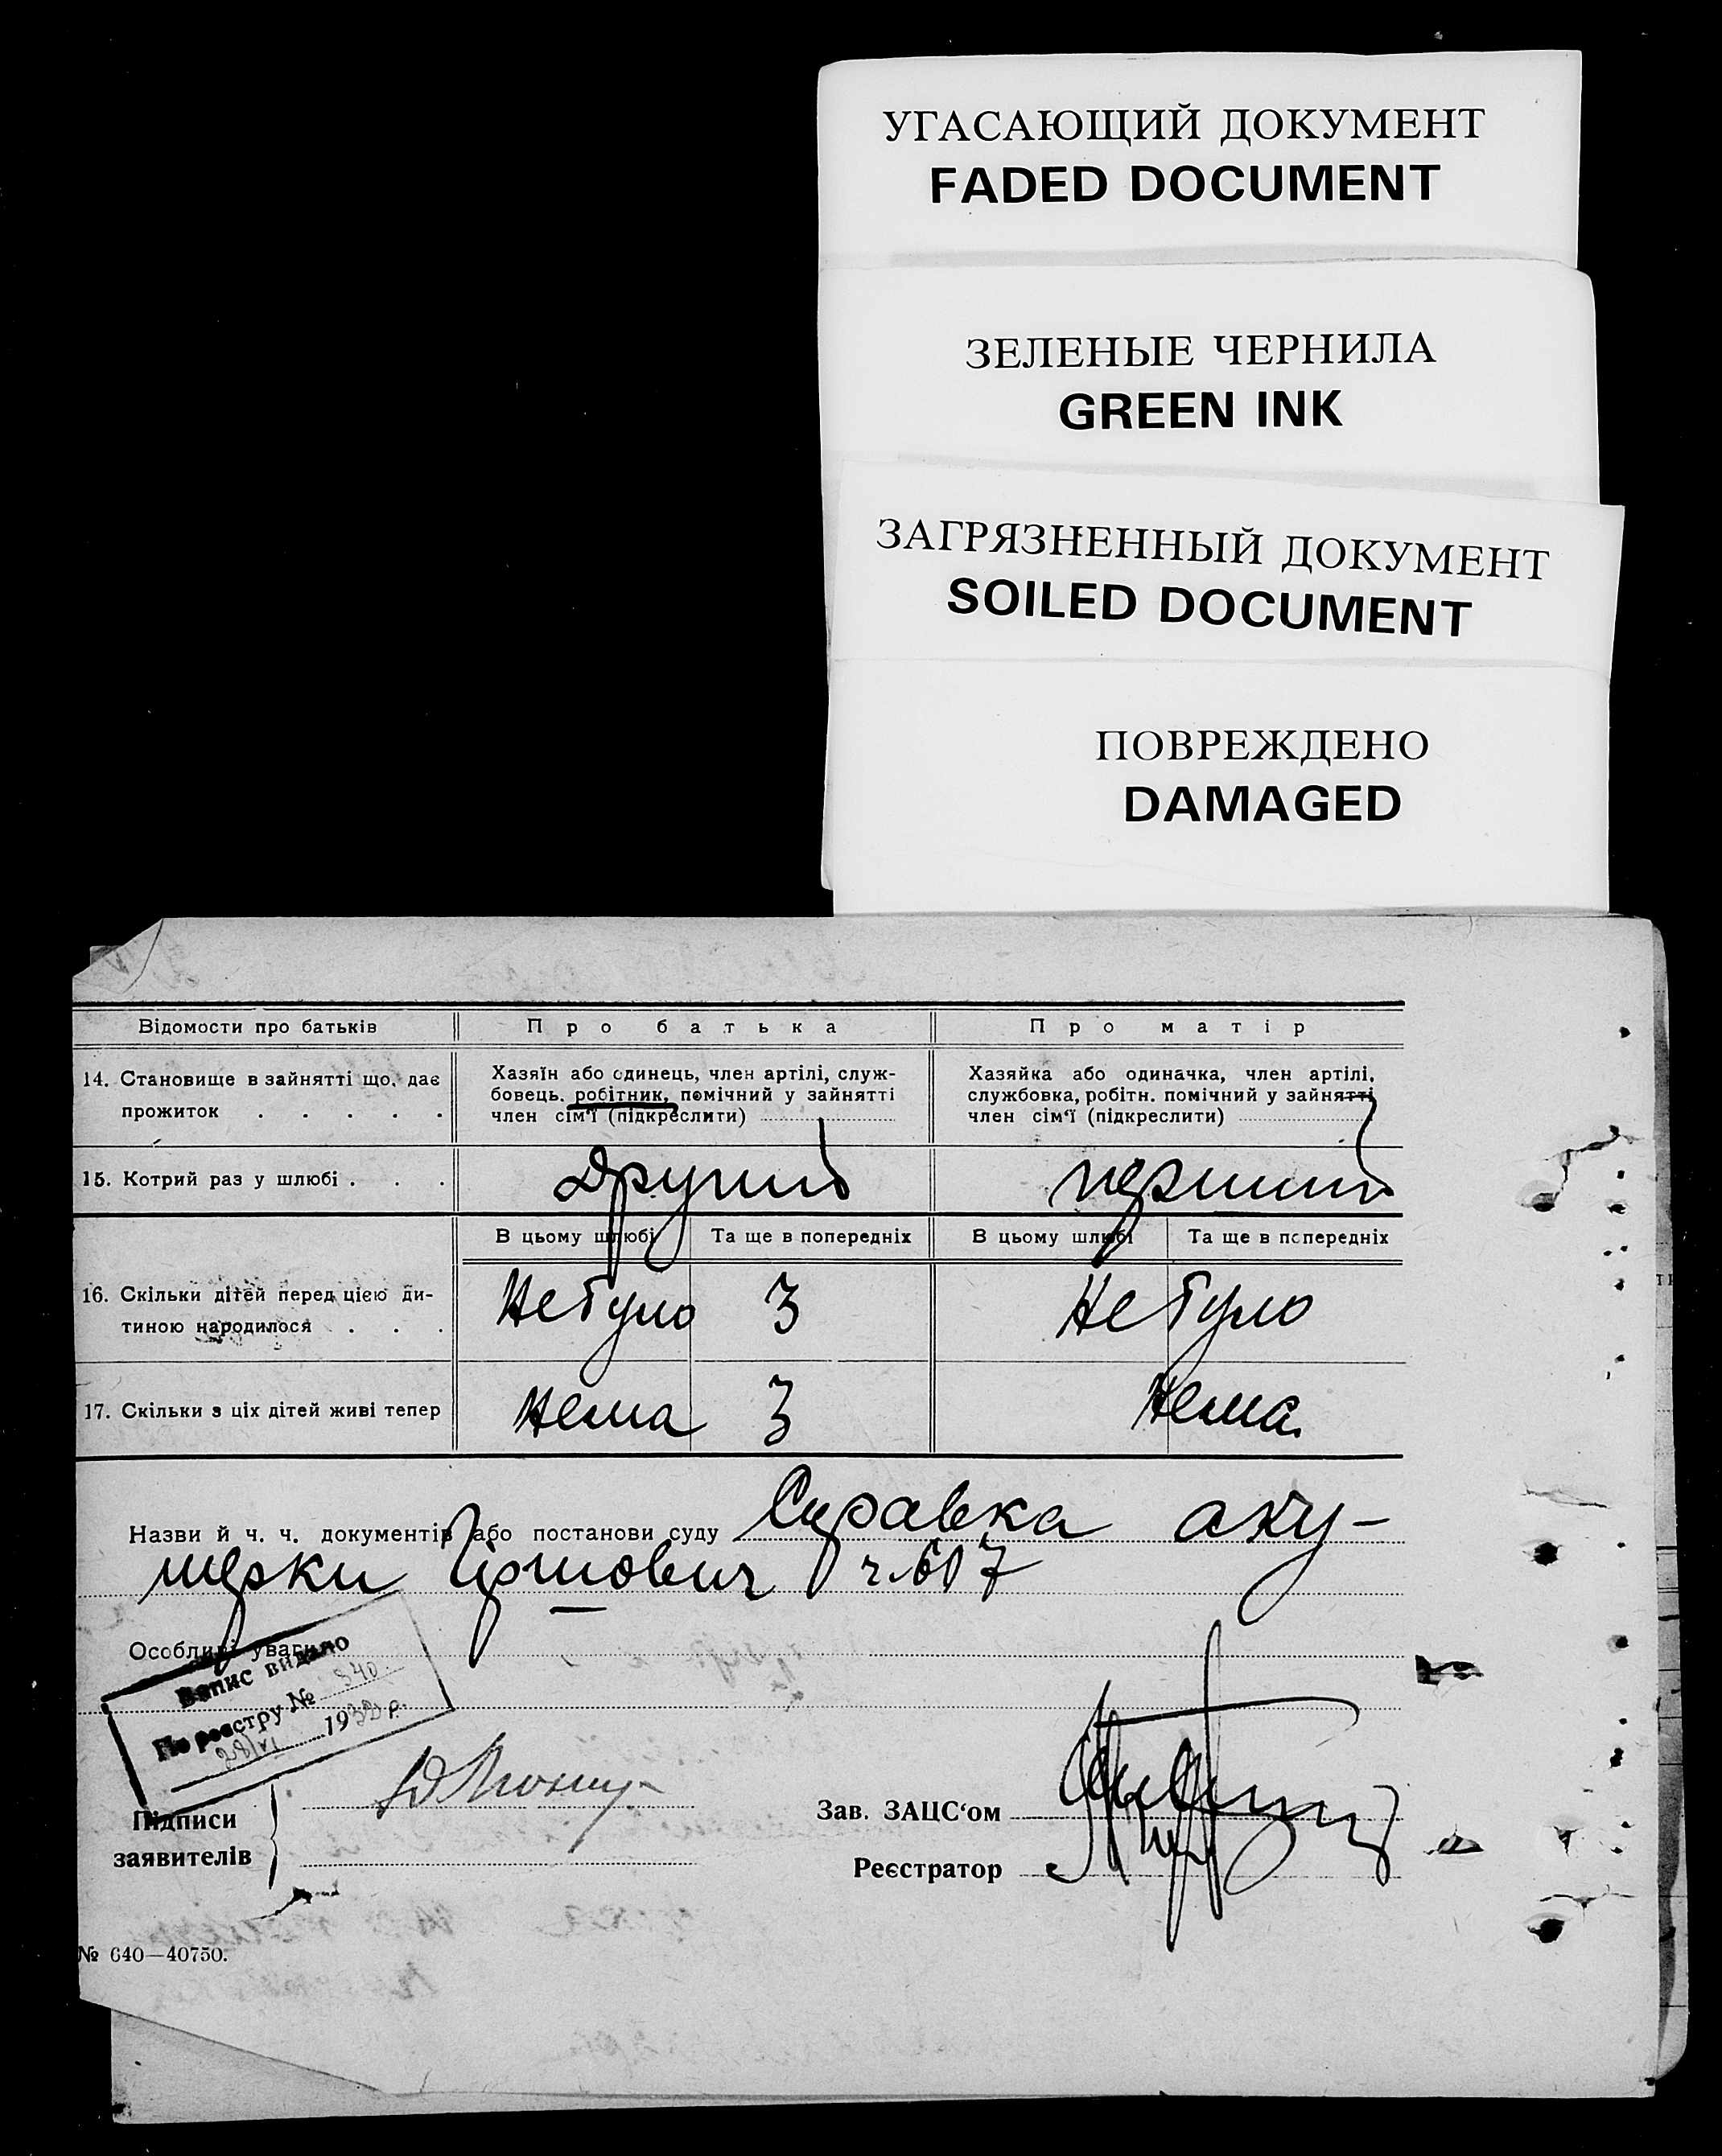 УГАСАЮЩИЙ ДОКУМЕНТ
FADED DOCUMENT
ЗЕЛЕНЫЕ ЧЕРНИЛА
GREEN INK
ЗАГРЯЗНЕННЫЙ ДОКУМЕНТ
SOILED DOCUMENT
ПОВРЕЖДЕНО
DAMAGED
Відомости про батьків
Про батька
Про матір
14. Становище в зайнятті що, дає
прожиток . . . . .
Хазяїн або одинець, член артілі, служ-
бовець. робітник, помічний у зайнятті
член сім'ї (підкреслити)
Хазяйка або одиначка, член артілі,
службовка, робітн. помічний у зайнятті
член сім'ї (підкреслити)
15. Котрий раз у шлюбі . . .
Другий
перший
В цьому шлюбі
Та ще в попередніх
В цьому шлюбі
Та ще в попередніх
16. Скільки дітей перед цією ди-
тиною народилося . . .
Не було
3
Не було
17. Скільки з ціх дітей живі тепер
Нема
3
Нема
Назви й ч. ч. документів або постанови суду Справка аку-
шерки Гіршович ч. 607
Особливі уваги
Запис видано
По реєстру № 840
28/VI 1932 р.
Підписи
заявителів
Зав. ЗАЦС'ом
Реєстратор
№ 640—40750.